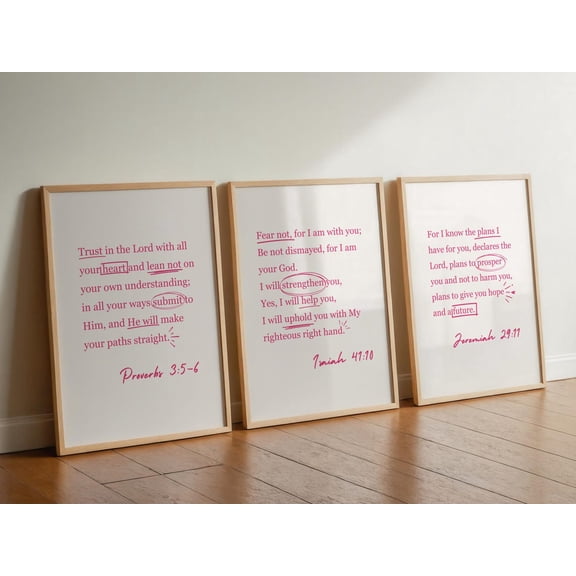 Trust in the Lord with all
your heart and lean not on
your own understanding;
in all your ways submit to
Him, and He will make
your paths straight.
Proverbs 3:5-6
Fear not, for I am with you;
Be not dismayed, for I am
your God.
I will strengthen you,
Yes, I will help you,
I will uphold you with My
righteous right hand.
Isaiah 41:10
For I know the plans I
have for you, declares the
Lord, plans to prosper
you and not to harm you,
plans to give you hope
and a future.
Jeremiah 29:11